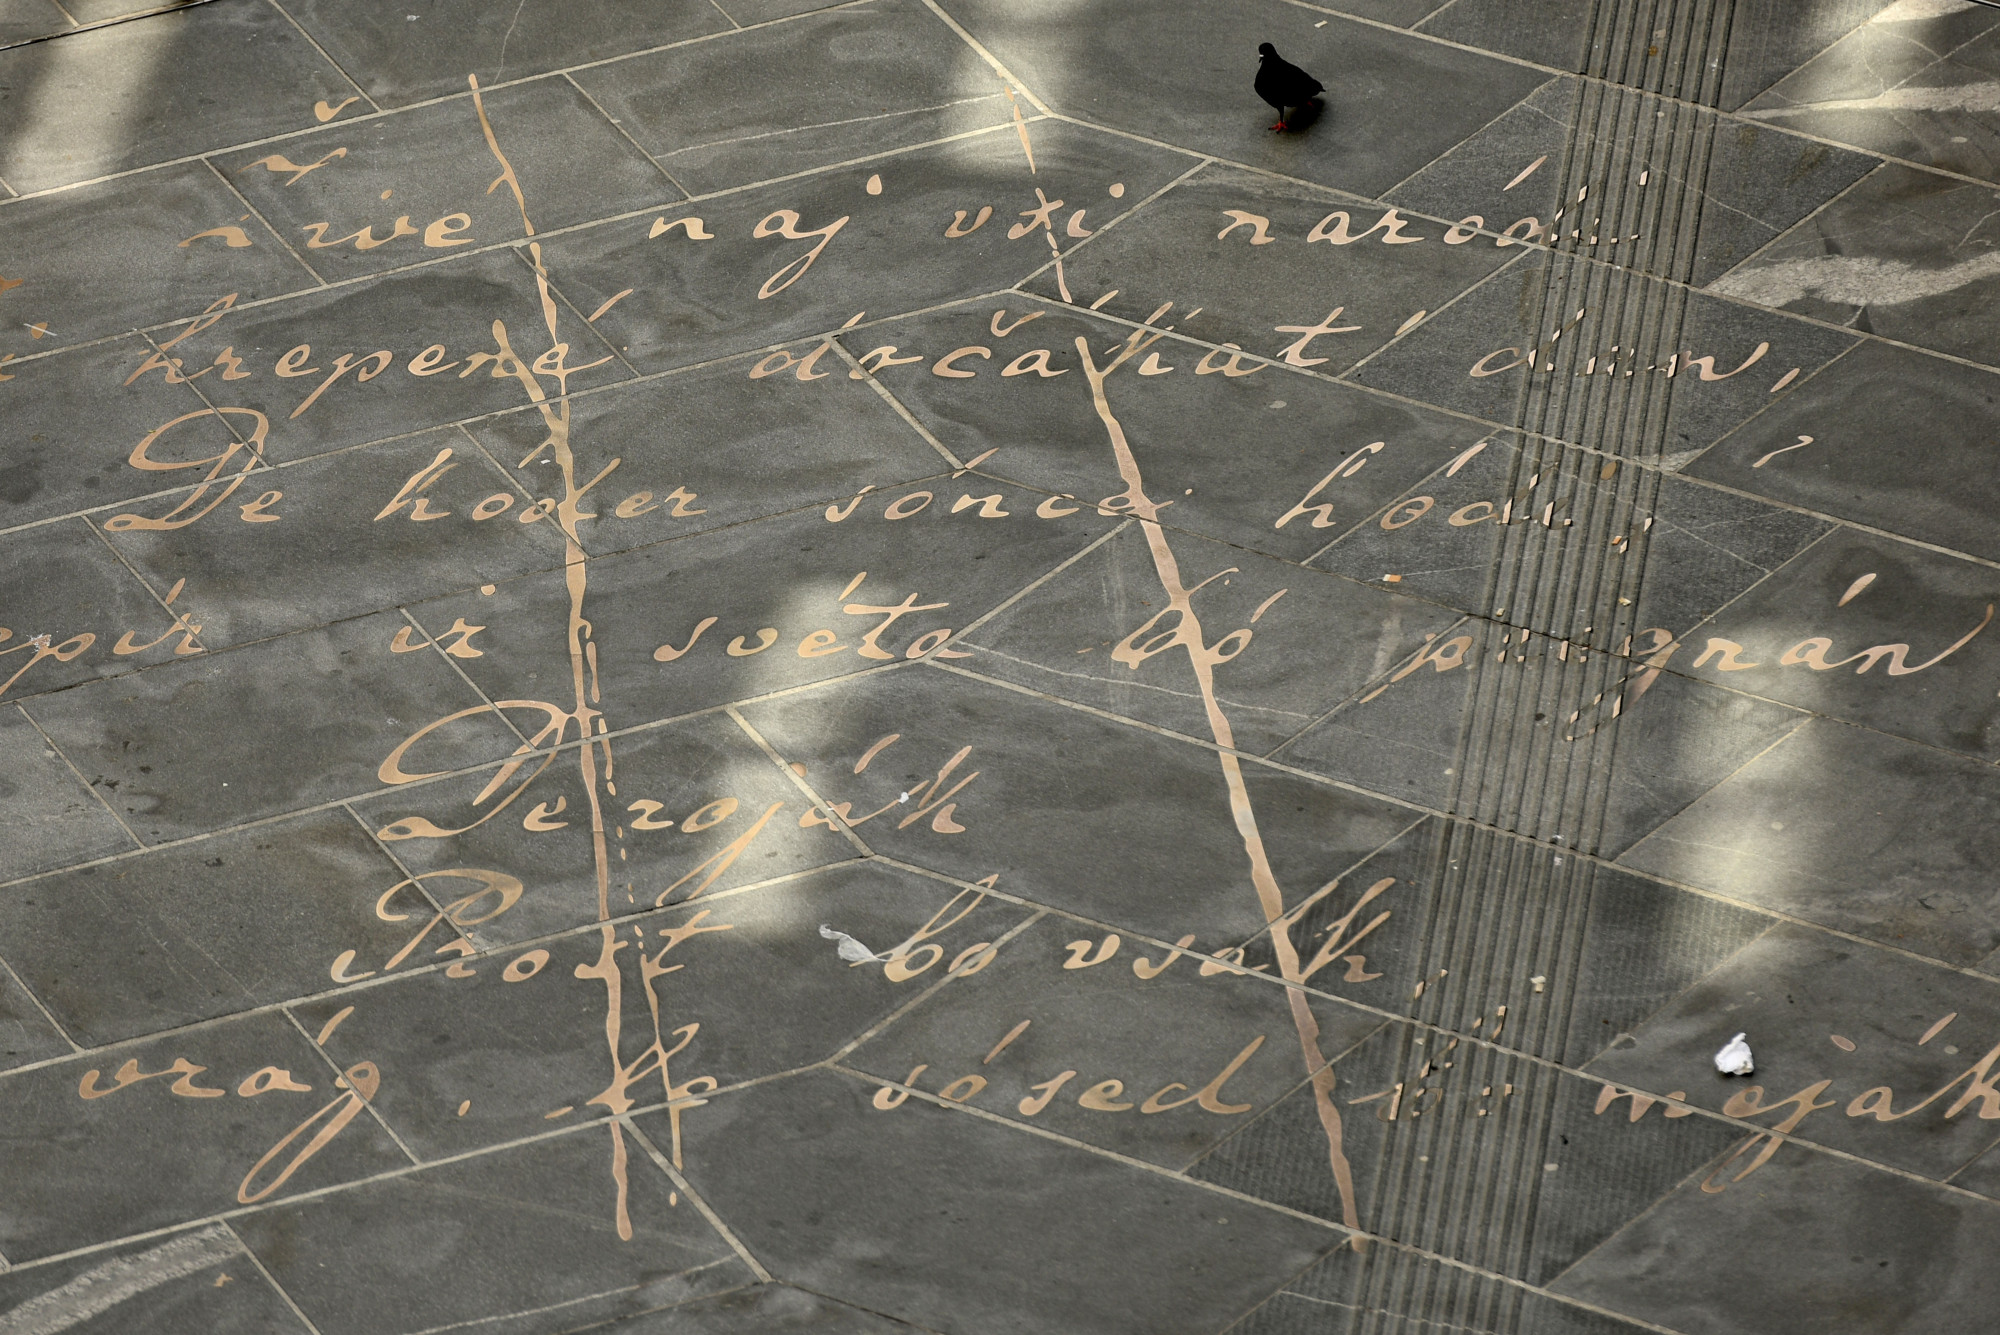 žive naj vsi naródi
hrepené dočakat' dan,
De koder sónce hódi,
epír iz svéta bó pregnán
De roják
Prost bo vsak,
vrág, le sósed bo meják